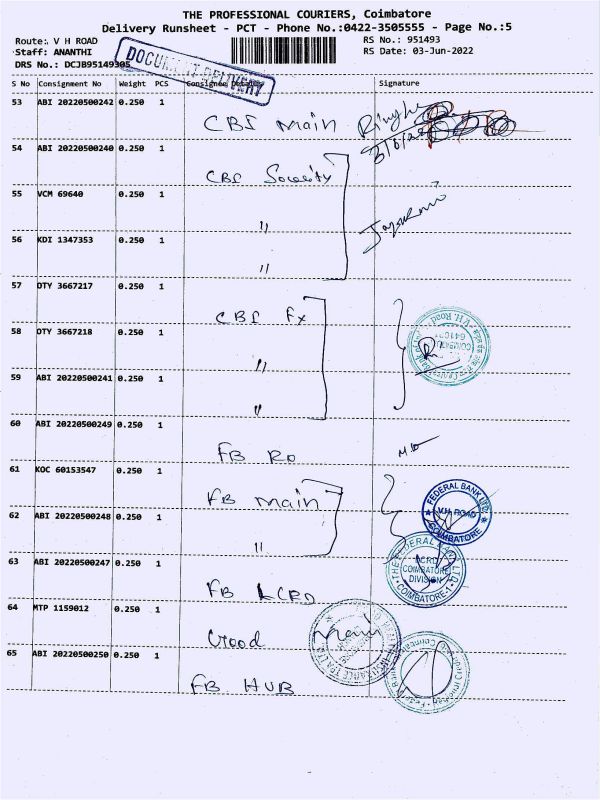 THE PROFESSIONAL COURIERS, Coimbatore
Delivery Runsheet - PCT - Phone No.:0422-3505555 - Page No.:5
Route: V H ROAD RS No.: 951493
Staff: ANANTHI RS Date: 03-Jun-2022
DRS No.: DCJB95149305
DOCUMENT DELIVERY
S No Consignment No Weight PCS Consignee Details Signature
53 ABI 20220500242 0.250 1
CBI Main
54 ABI 20220500240 0.250 1
CBI
55 VCM 69640 0.250 1
"
56 KDI 1347353 0.250 1
"
57 OTY 3667217 0.250 1
CBI Fx
58 OTY 3667218 0.250 1
V.H. Road
"
59 ABI 20220500241 0.250 1
"
60 ABI 20220500249 0.250 1
FB RO
61 KOC 60153547 0.250 1
FB Main
FEDERAL BANK LTD.
V.H. ROAD
COIMBATORE
62 ABI 20220500248 0.250 1
"
63 ABI 20220500247 0.250 1
THE FEDERAL BANK LTD.
LCRD
COIMBATORE
DIVISION
COIMBATORE-1
FB LCRD
64 MTP 1159012 0.250 1
Good
65 ABI 20220500250 0.250 1
FB HUB